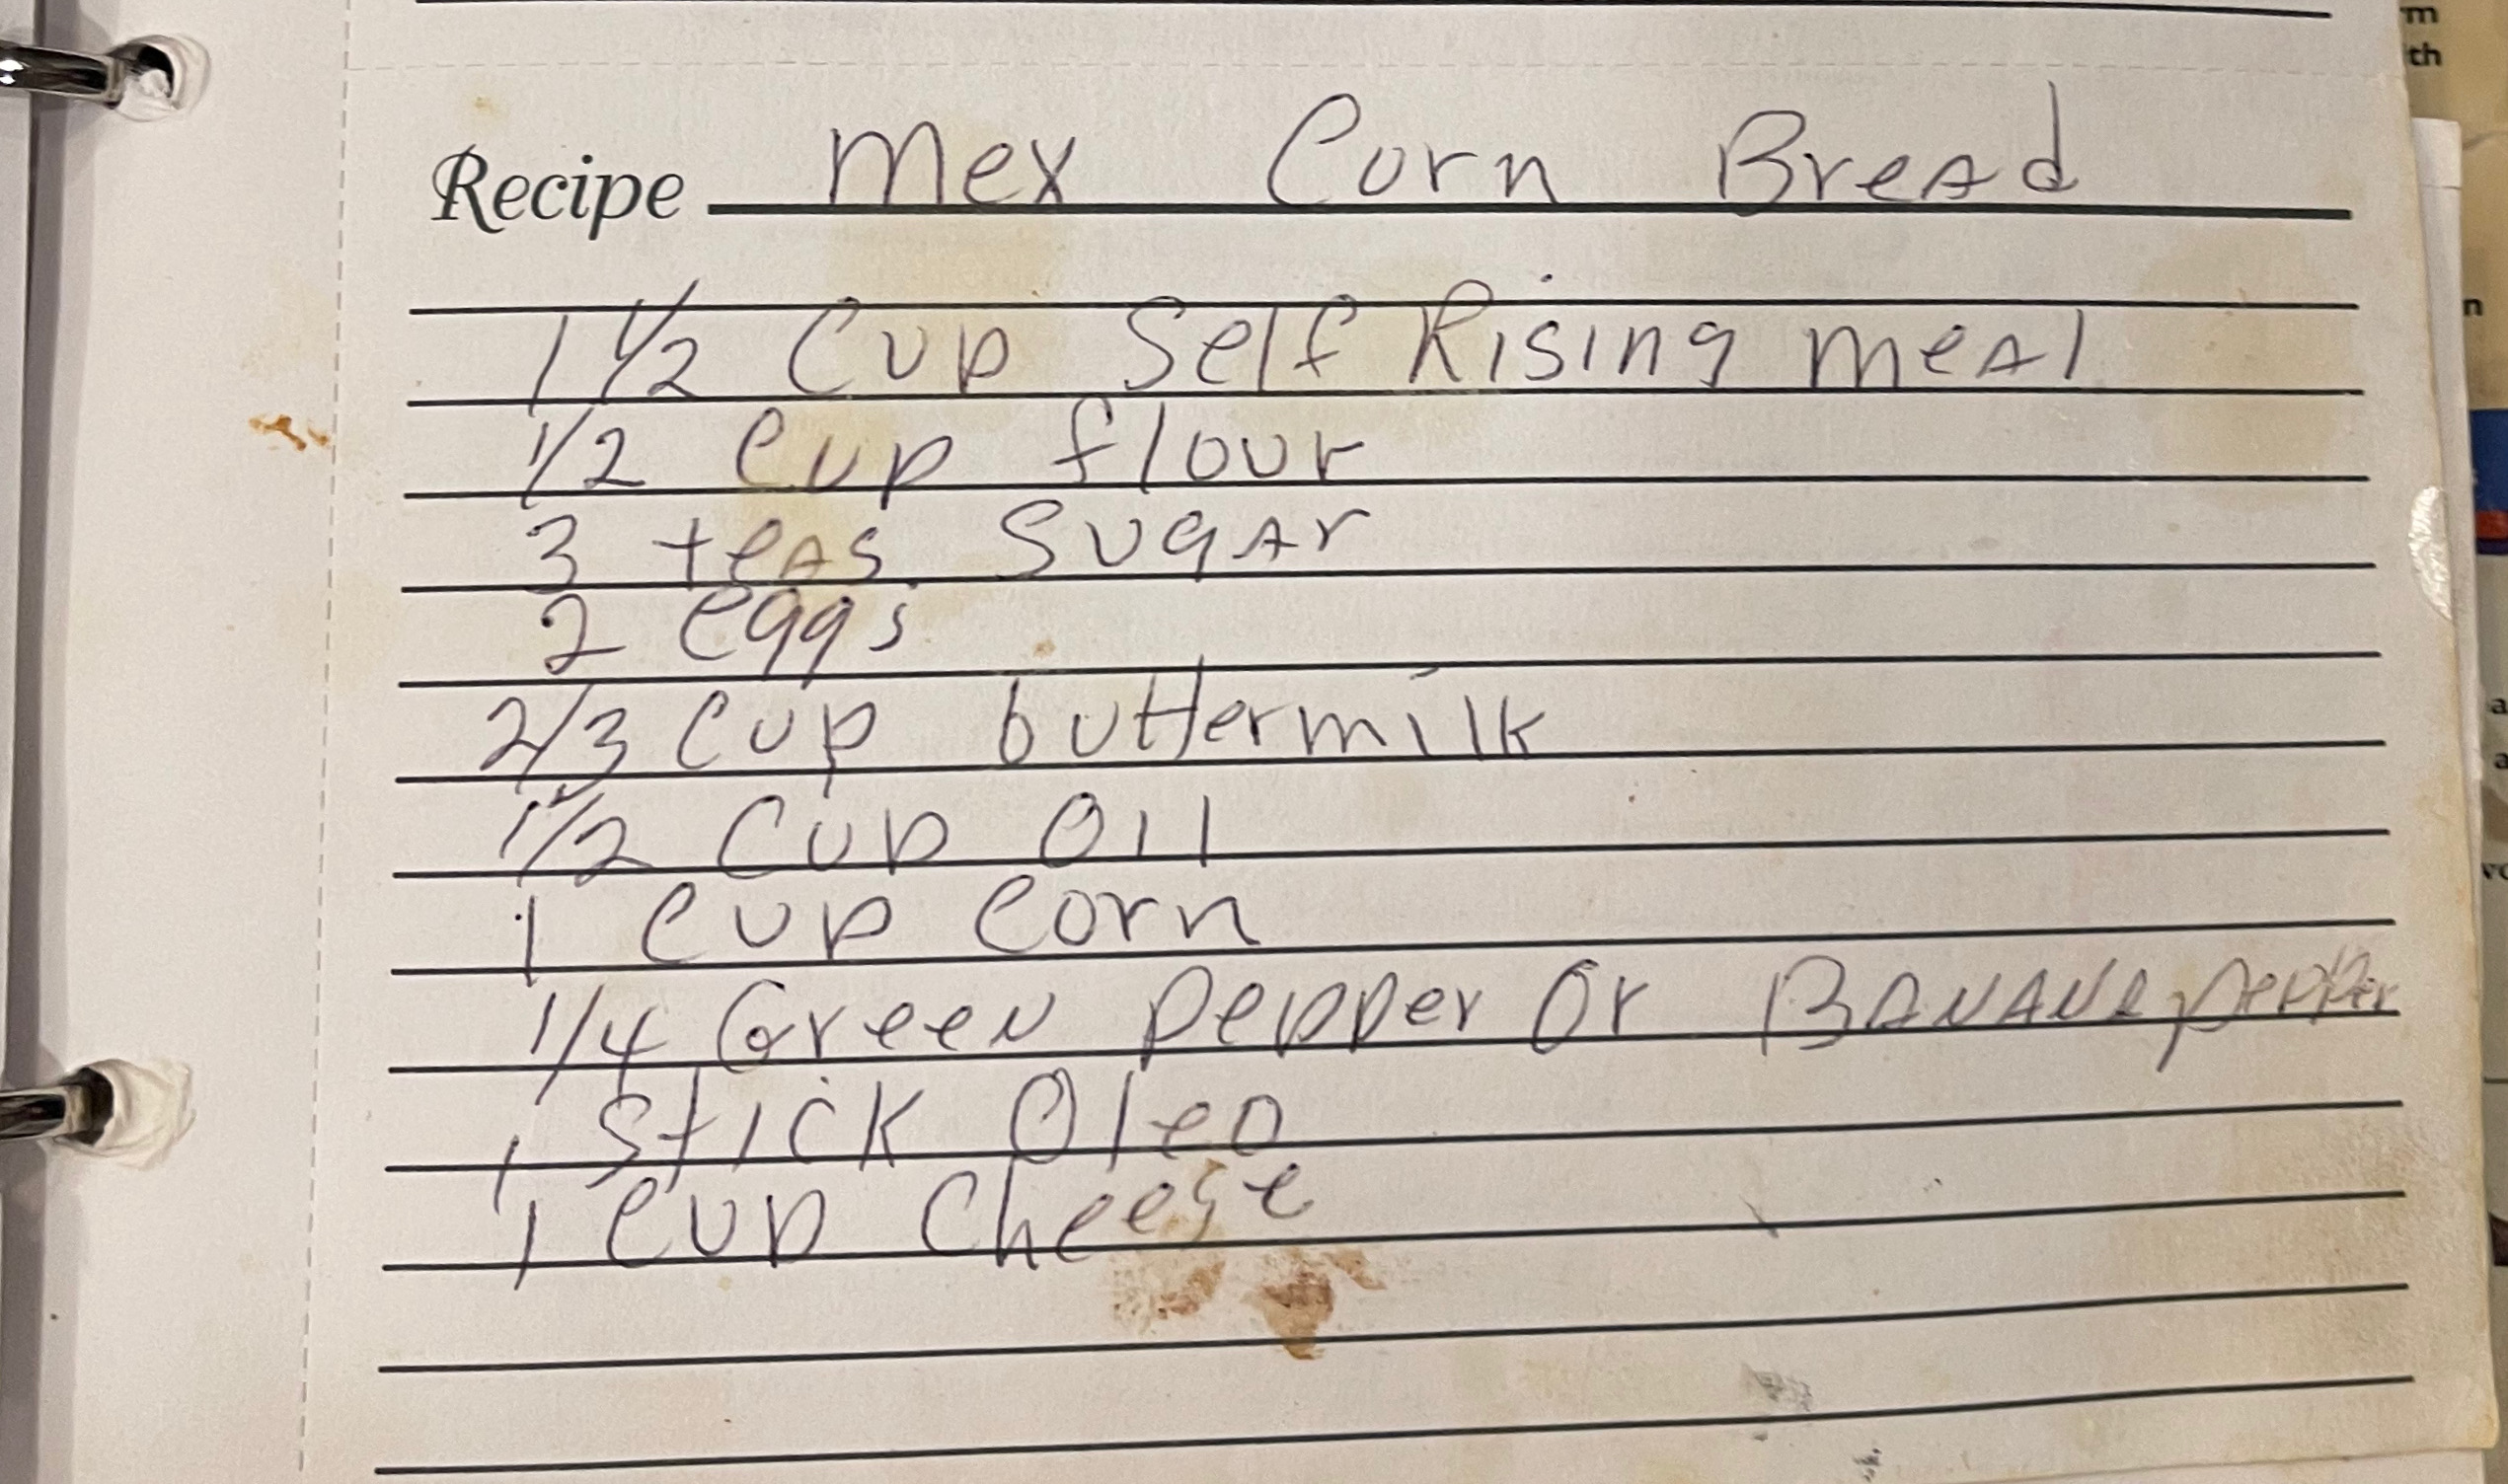 Recipe Mex Corn Bread
1 1/2 Cup Self Rising meal
1/2 Cup flour
3 teas. Sugar
2 eggs
2/3 Cup buttermilk
1/2 Cup Oil
1 Cup Corn
1/4 Green pepper or BANANA pepper
1 Stick Oleo
1 Cup Cheese
rm
th
n
a
a